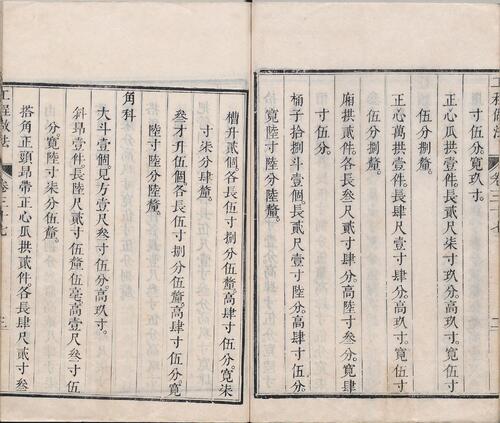 寸伍分。寬玖寸。
正心瓜拱壹件。長貳尺柒寸玖分。高玖寸。寬伍寸
伍分捌釐。
正心萬拱壹件。長肆尺壹寸肆分。高玖寸。寬伍寸
伍分捌釐。
廂拱貳件。各長叁尺貳寸肆分。高陸寸叁分。寬肆
寸伍分。
桶子拾捌斗壹個。長貳尺壹寸陸分。高肆寸伍分。
寬陸寸陸分陸釐。
卷三十七
二
槽升貳個。各長伍寸捌分伍釐。高肆寸伍分。寬柒
寸柒分肆釐。
叁才升伍個。各長伍寸捌分伍釐。高肆寸伍分。寬
陸寸陸分陸釐。
角科
大斗壹個。見方壹尺叁寸伍分。高玖寸。
斜昂壹件。長陸尺貳寸伍釐伍毫。高壹尺叁寸伍
分。寬陸寸柒分伍釐。
搭角正頭昂帶正心瓜拱貳件。各長肆尺貳寸叁
工程做法
卷三十七
三